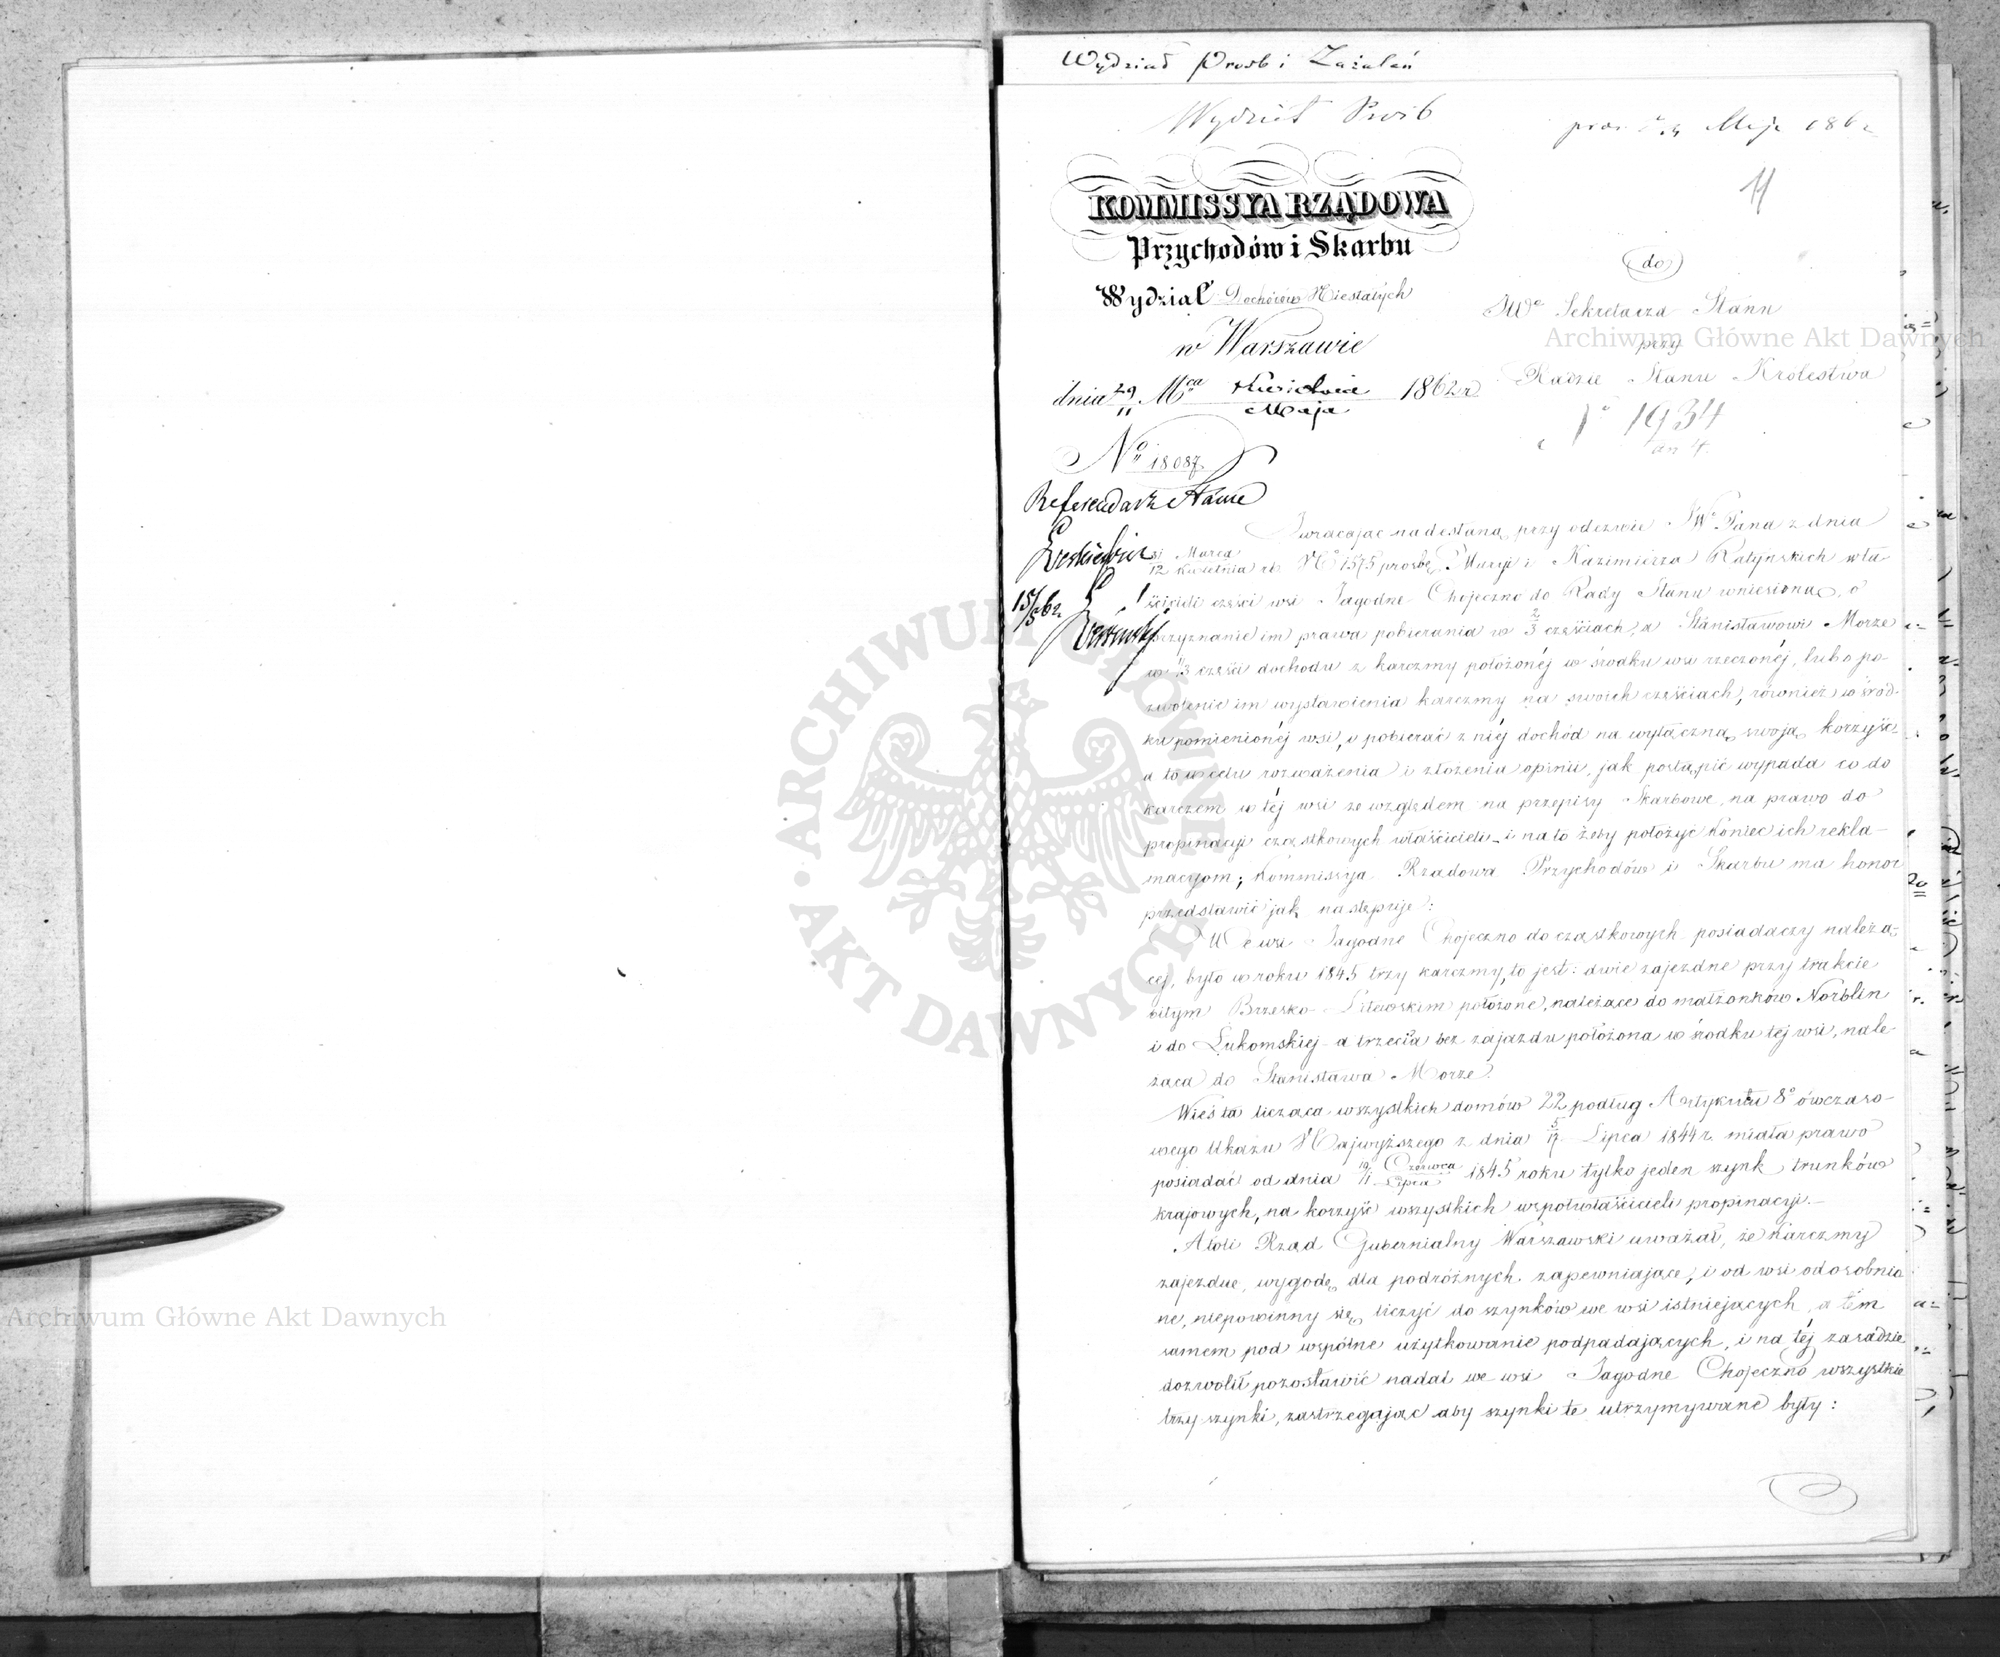 Wydział Prośb i Zażaleń
Wydział Prośb
Maja 1862
11
KOMMISSYA RZĄDOWA
Przychodów i Skarbu
Wydział Dochodów Niestałych
w Warszawie
dnia 29/11 Mca Kwietnia/Maja 1862 r.
No 18087.
Referendarz Stanu
15/5 62
do
JWo Sekretarza Stanu
przy
Radzie Stanu Królestwa
No 1934
Zwracając nadesłaną przy odezwie JWo Pana z dnia
31 Marca/12 Kwietnia rb. No 1575 prośbę Maryi i Kazimierza Ratyńskich wła-
ścicieli części wsi Jagodne Chojeczno do Rady Stanu wniesioną, o
przyznanie im prawa pobierania w 2/3 częściach, a Stanisławowi Morze
w 1/3 części dochodu z karczmy położonéj w środku wsi rzeczonéj, lub o po-
zwolenie im wystawienia karczmy na swoich częściach, również w śród-
ku pomienionéj wsi, i pobierać z niéj dochód na wyłączną swoją korzyść,
a to w celu rozważenia i złożenia opinii, jak postąpić wypada co do
karczem w téj wsi ze względem na przepisy Skarbowe, na prawo do
propinacyi cząstkowych właścicieli - i na to żeby położyć koniec ich rekla-
macyom; Kommissya Rządowa Przychodów i Skarbu ma honor
przedstawić jak następuje:
We wsi Jagodne Chojeczno do cząstkowych posiadaczy należą-
céj, było w roku 1845 trzy karczmy, to jest: dwie zajezdne przy trakcie
bitym Brzesko-Litewskim położone, należące do małżonków Norblin
i do Łukomskiej - a trzecia bez zajazdu położona w środku tej wsi, nale-
żąca do Stanisława Morze.
Wieś ta licząca wszystkich domów 22 podług Artykułu 8o ówczaso-
wego Ukazu Najwyższego z dnia 5/17 Lipca 1844 r. miała prawo
posiadać od dnia 19 Czerwca/1 Lipca 1845 roku tylko jeden szynk trunków
krajowych, na korzyść wszystkich współwłaścicieli propinacyi.-
Atoli Rząd Gubernialny Warszawski uważał, że Karczmy
zajezdne, wygodę dla podróżnych zapewniające, i od wsi odosobnio-
ne, niepowinny się liczyć do szynków we wsi istniejących, a tém
samem pod wspólne użytkowanie podpadających, i na téj zasadzie
dozwolił pozostawić nadal we wsi Jagodne Chojeczno wszystkie
trzy szynki, zastrzegając aby szynki te utrzymywane były:
Archiwum Główne Akt Dawnych
Archiwum Główne Akt Dawnych
ARCHIWUM GŁÓWNE · AKT DAWNYCH ·